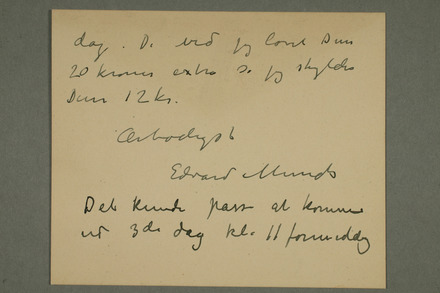 dag. De ved jeg lovet Dem
20 kroner extra so jeg skylder
Dem 12 kr.
Ærbødigst
Edvard Munch
Det kunde passe at komme
ud 3die dag kl. 11 formiddag